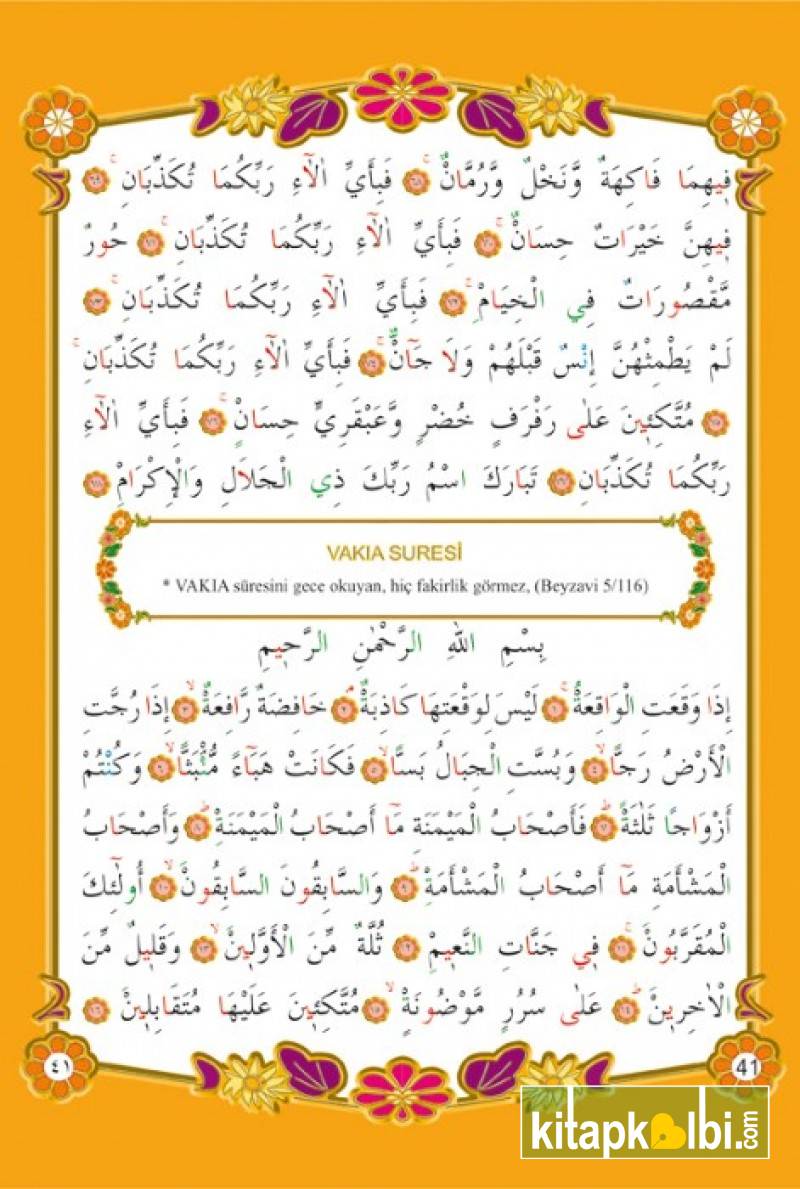 فِيهِمَا فَاكِهَةٌ وَنَخْلٌ وَرُمَّانٌۚ ﴿٦٨﴾ فَبِأَيِّ اٰلَٓاءِ رَبِّكُمَا تُكَذِّبَانِۚ ﴿٦٩﴾
فِيهِنَّ خَيْرَاتٌ حِسَانٌۚ ﴿٧٠﴾ فَبِأَيِّ اٰلَٓاءِ رَبِّكُمَا تُكَذِّبَانِۚ ﴿٧١﴾ حُورٌ
مَقْصُورَاتٌ فِي الْخِيَامِۚ ﴿٧٢﴾ فَبِأَيِّ اٰلَٓاءِ رَبِّكُمَا تُكَذِّبَانِۚ ﴿٧٣﴾
لَمْ يَطْمِثْهُنَّ إِنْسٌ قَبْلَهُمْ وَلَا جَٓانٌّۚ ﴿٧٤﴾ فَبِأَيِّ اٰلَٓاءِ رَبِّكُمَا تُكَذِّبَانِۚ
﴿٧٥﴾ مُتَّكِـِٔينَ عَلٰى رَفْرَفٍ خُضْرٍ وَعَبْقَرِيٍّ حِسَانٍۚ ﴿٧٦﴾ فَبِأَيِّ اٰلَٓاءِ
رَبِّكُمَا تُكَذِّبَانِ ﴿٧٧﴾ تَبَارَكَ اسْمُ رَبِّكَ ذِي الْجَلَالِ وَالْإِكْرَامِ ﴿٧٨﴾
VAKIA SURESİ
* VAKIA sûresini gece okuyan, hiç fakirlik görmez, (Beyzavi 5/116)
بِسْمِ اللهِ الرَّحْمٰنِ الرَّحِيمِ
إِذَا وَقَعَتِ الْوَاقِعَةُۙ ﴿١﴾ لَيْسَ لِوَقْعَتِهَا كَاذِبَةٌۢ ﴿٢﴾ خَافِضَةٌ رَافِعَةٌۙ ﴿٣﴾ إِذَا رُجَّتِ
الْأَرْضُ رَجًّاۙ ﴿٤﴾ وَبُسَّتِ الْجِبَالُ بَسًّاۙ ﴿٥﴾ فَكَانَتْ هَبَٓاءً مُنْبَثًّاۙ ﴿٦﴾ وَكُنْتُمْ
أَزْوَاجًا ثَلٰثَةًۜ ﴿٧﴾ فَأَصْحَابُ الْمَيْمَنَةِ مَٓا أَصْحَابُ الْمَيْمَنَةِۜ ﴿٨﴾ وَأَصْحَابُ
الْمَشْأَمَةِ مَٓا أَصْحَابُ الْمَشْأَمَةِۜ ﴿٩﴾ وَالسَّابِقُونَ السَّابِقُونَۙ ﴿١٠﴾ أُولٰٓئِكَ
الْمُقَرَّبُونَۚ ﴿١١﴾ فِي جَنَّاتِ النَّعِيمِ ﴿١٢﴾ ثُلَّةٌ مِنَ الْأَوَّلِينَۙ ﴿١٣﴾ وَقَلِيلٌ مِنَ
الْاٰخِرِينَۜ ﴿١٤﴾ عَلٰى سُرُرٍ مَوْضُونَةٍۙ ﴿١٥﴾ مُتَّكِـِٔينَ عَلَيْهَا مُتَقَابِلِينَ ﴿١٦﴾
٤١
41
kitapkalbi.com